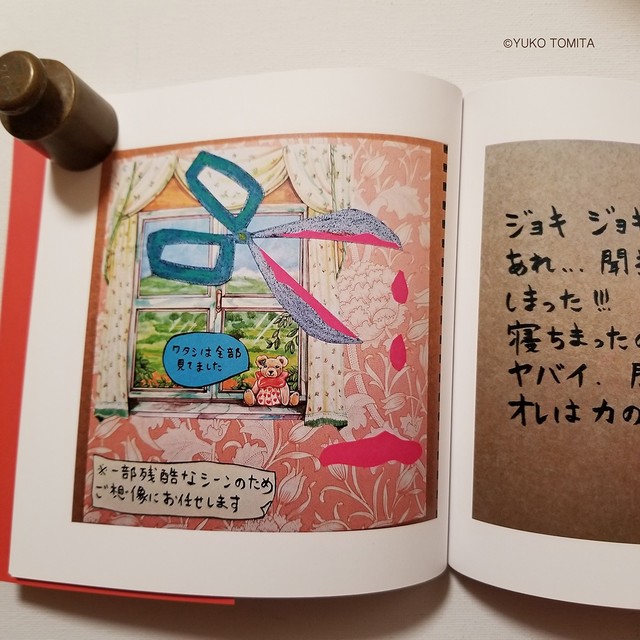 ©YUKO TOMITA
ワタシは全部
見てました
※一部残酷なシーンのため
ご想像にお任せします
ジョキ ジョキ
あれ... 聞き
しまった!!!
寝ちまった
ヤバイ.
オレは力の